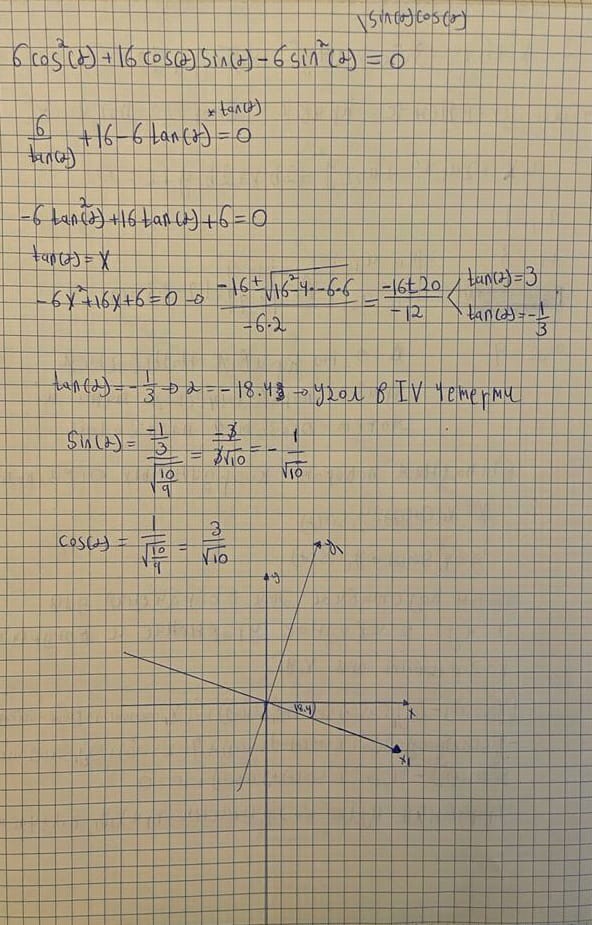 \sin(α)cos(α)
6cos²(α)+16cos(α)sin(α)-6sin²(α)=0
* tan(α)
6/tan(α) +16-6tan(α)=0
-6tan²(α)+16tan(α)+6=0
tan(α)=x
-6x²+16x+6=0 → (-16±√(16²-4·-6·6))/(-6·2) = (-16±20)/(-12) < tan(α)=3
tan(α)=-1/3
tan(α)=-1/3 → α=-18.43 → угол в IV четерти
sin(α)= (-1/3)/√(10/9) = -3/(3√10) = -1/√10
cos(α)= 1/√(10/9) = 3/√10
y1
y
18.4
x
x1